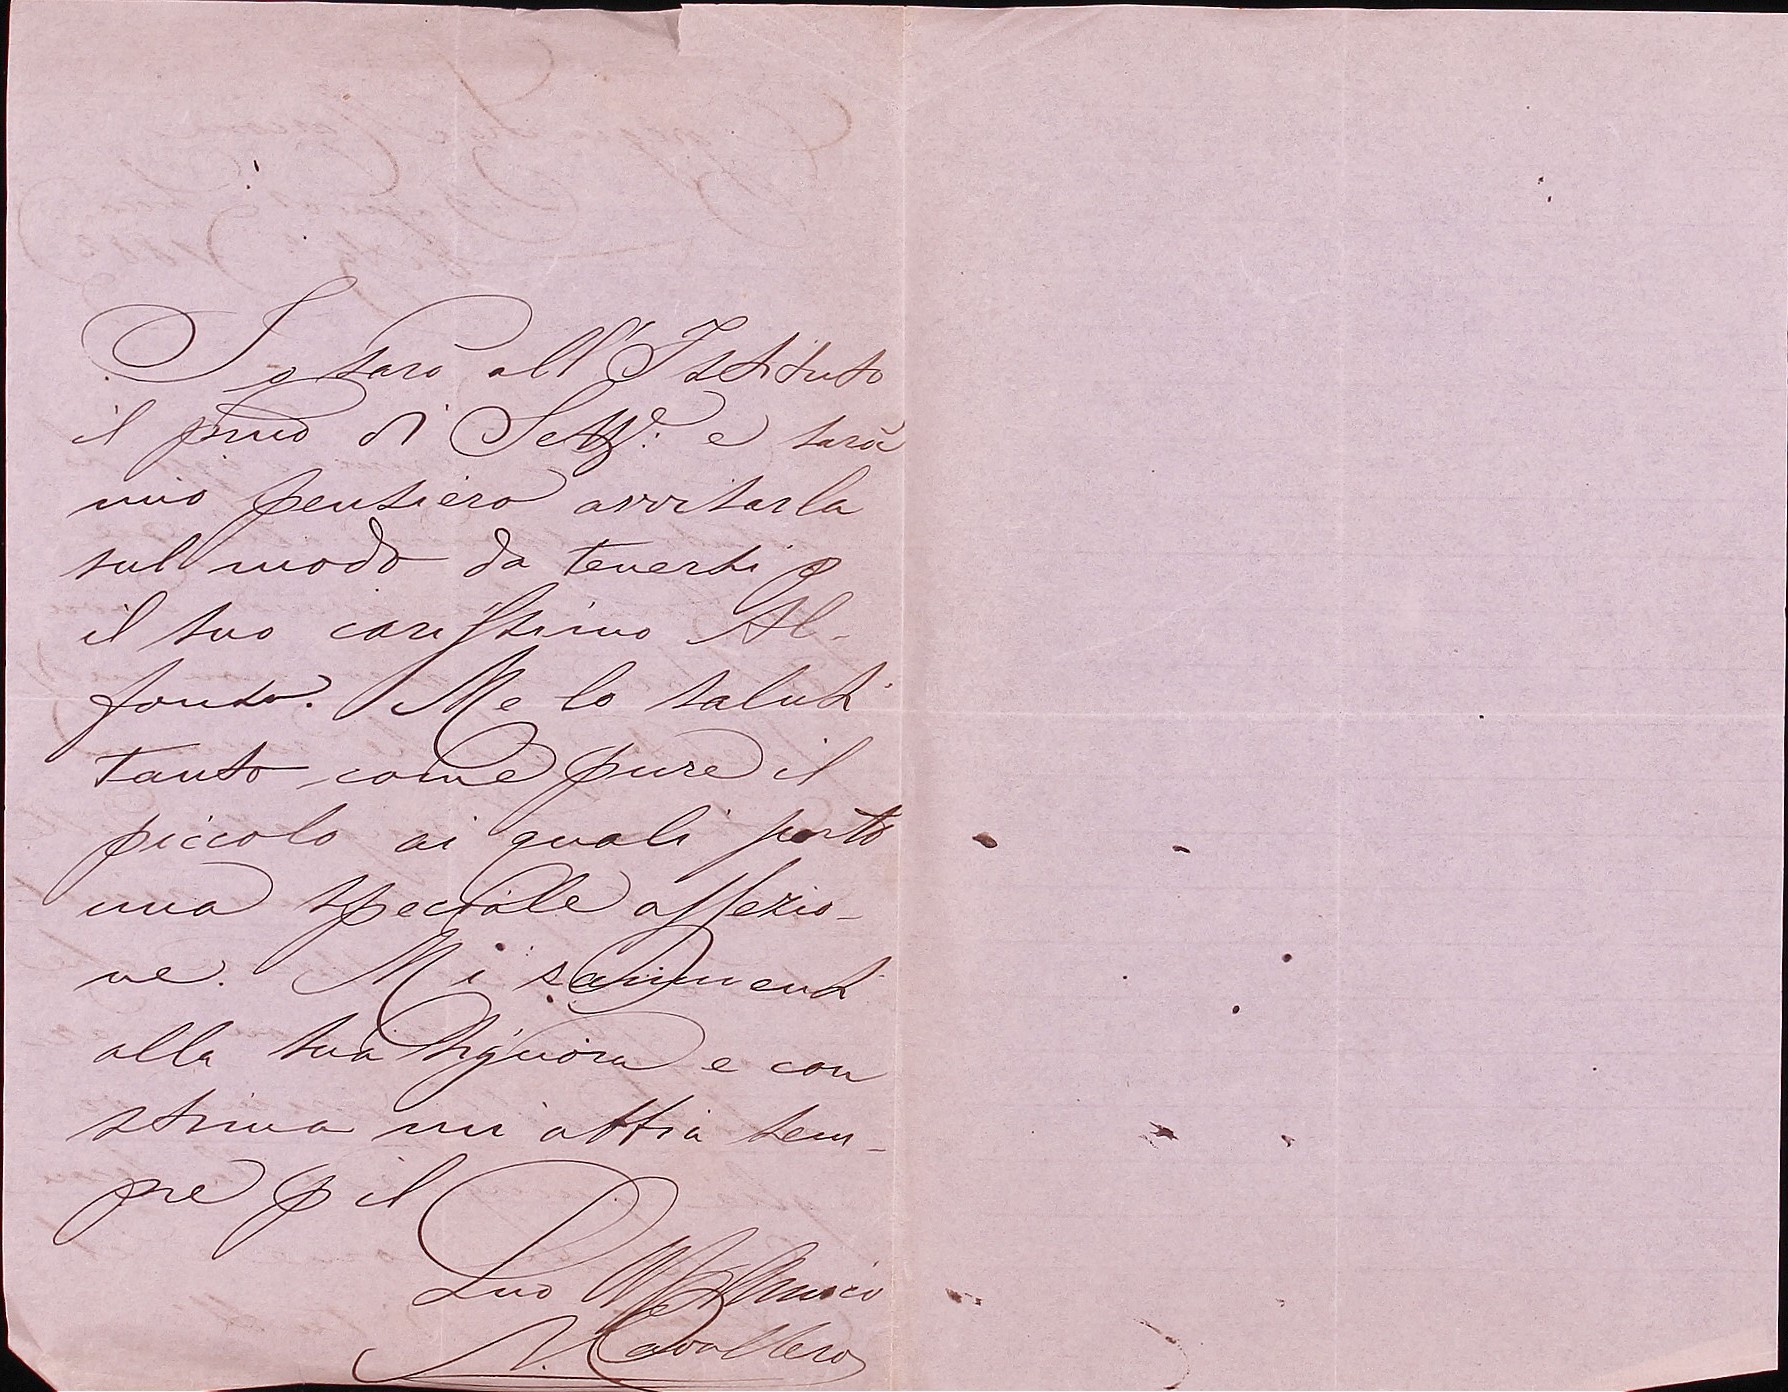 Io sarò all'Istituto
il primo di Sett.e: e sarà
mio pensiero avvisarla
sul modo da tenersi p
il suo carissimo Al-
fonso. Me lo saluti
tanto come pure il
piccolo ai quali porto
una speciale affezio-
ne. Mi rammenti
alla sua Signora e con
stima mi abbia sem-
pre p il
Suo Aff Amico
N. Cavallero